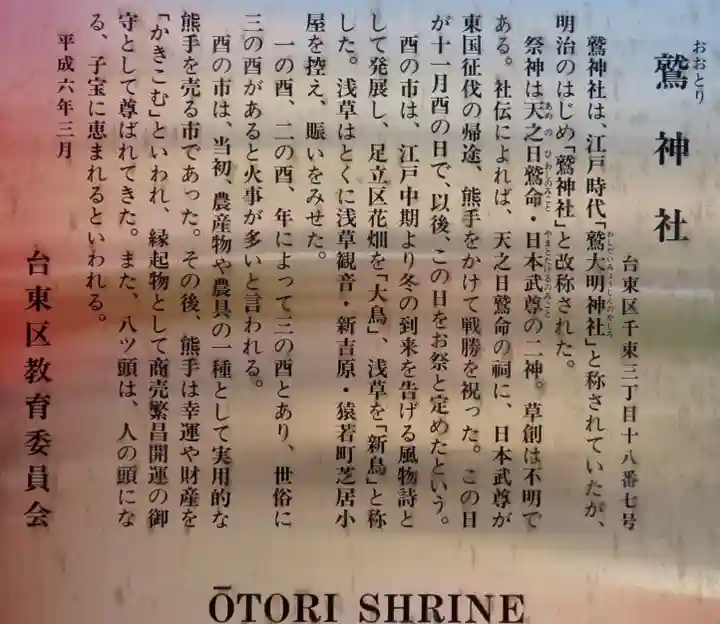 おおとり
鷲神社
台東区千束三丁目十八番七号
鷲神社は、江戸時代「鷲大明神社」と称されていたが、
わしだいみょうじんのやしろ
明治のはじめ「鷲神社」と改称された。
祭神は天之日鷲命・日本武尊の二神。草創は不明で
あめのひわしのみこと
やまとたけるのみこと
ある。社伝によれば、天之日鷲命の祠に、日本武尊が
東国征伐の帰途、熊手をかけて戦勝を祝った。この日
が十一月酉の日で、以後、この日をお祭と定めたという。
酉の市は、江戸中期より冬の到来を告げる風物詩と
して発展し、足立区花畑を「大鳥」、浅草を「新鳥」と称
した。浅草はとくに浅草観音・新吉原・猿若町芝居小
屋を控え、賑いをみせた。
一の酉、二の酉、年によって三の酉とあり、世俗に
三の酉があると火事が多いと言われる。
酉の市は、当初、農産物や農具の一種として実用的な
熊手を売る市であった。その後、熊手は幸運や財産を
「かきこむ」といわれ、縁起物として商売繁昌開運の御
守として尊ばれてきた。また、八ツ頭は、人の頭にな
る、子宝に恵まれるといわれる。
平成六年三月
台東区教育委員会
ŌTORI SHRINE